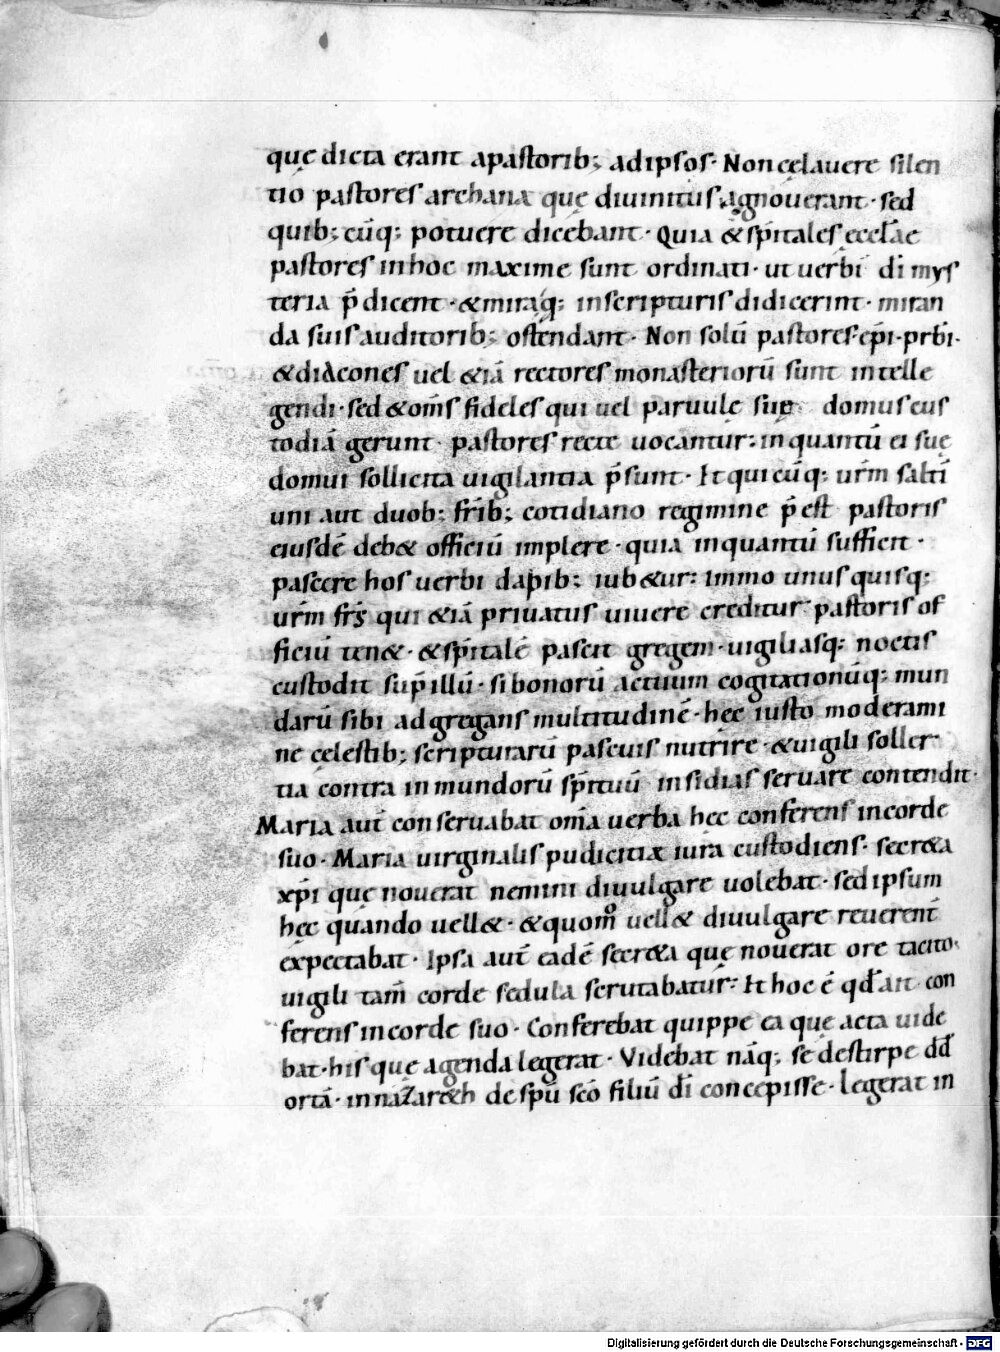 quę dicta erant apastorib; adipsos· Non cęlauere silen
tio pastores archana quę diuinitus agnouerant· sed
quib; cūq; potuere dicebant· Quia & sp̄itales ęcclae
pastores inhoc maxime sunt ordinati· ut uerbi di mys
teria p̄dicent· & miraq; inscripturis didicerint· miran
da suis auditorib; ostendant· Non solū pastores· ep̄i· prb̄i·
& diacones uel &iā rectores monasteriorū sunt intelle
gendi· sed & om̄s fideles qui uel paruulę suę domus cus
todiā gerunt· pastores recte uocantur: inquantū ei suę
domui sollicita uigilantia p̄sunt· Et qui cūq; ur̄m saltī
uni aut duob; fr̄ib; cotidiano regimine p̄est pastoris
eiusdē deb& officiū implere· quia inquantū sufficit·
pascere hos uerbi dapib; iub&ur: immo unus quisq;
ur̄m fr̄s qui &iā priuatus uiuere creditur pastoris of
ficiū ten&· & sp̄italē pascit gregem· uigiliasq; noctis
custodit sup̄illū· si bonorū actuum cogitationūq; mun
darū sibi adgregans multitudinē· hęc iusto moderami
ne cęlestib; scripturarū pascuis nutrire· & uigili soller
tia contra inmundorū sp̄ituū insidias seruare contendit·
Maria aut̄ conseruabat om̄a uerba hęc conferens incorde
suo· Maria uirginalis pudicitiæ iura custodiens· secr&a
xp̄i quę nouerat nemini diuulgare uolebat· sed ipsum
hęc quando uell&· & quom̊ uell& diuulgare reuerent̄
expectabat· Ipsa aut̄ eadē secr&a quę nouerat ore tacito·
uigili tam̄ corde sedula scrutabatur: Et hoc ē qd̄ ait con
ferens incorde suo· Conferebat quippe ea quę acta uide
bat· his quę agenda legerat· Videbat nāq; se destirpe dd̄
ortā· innazar&h de sp̄ū scō filiū di concepisse· legerat in
Digitalisierung gefördert durch die Deutsche Forschungsgemeinschaft - DFG